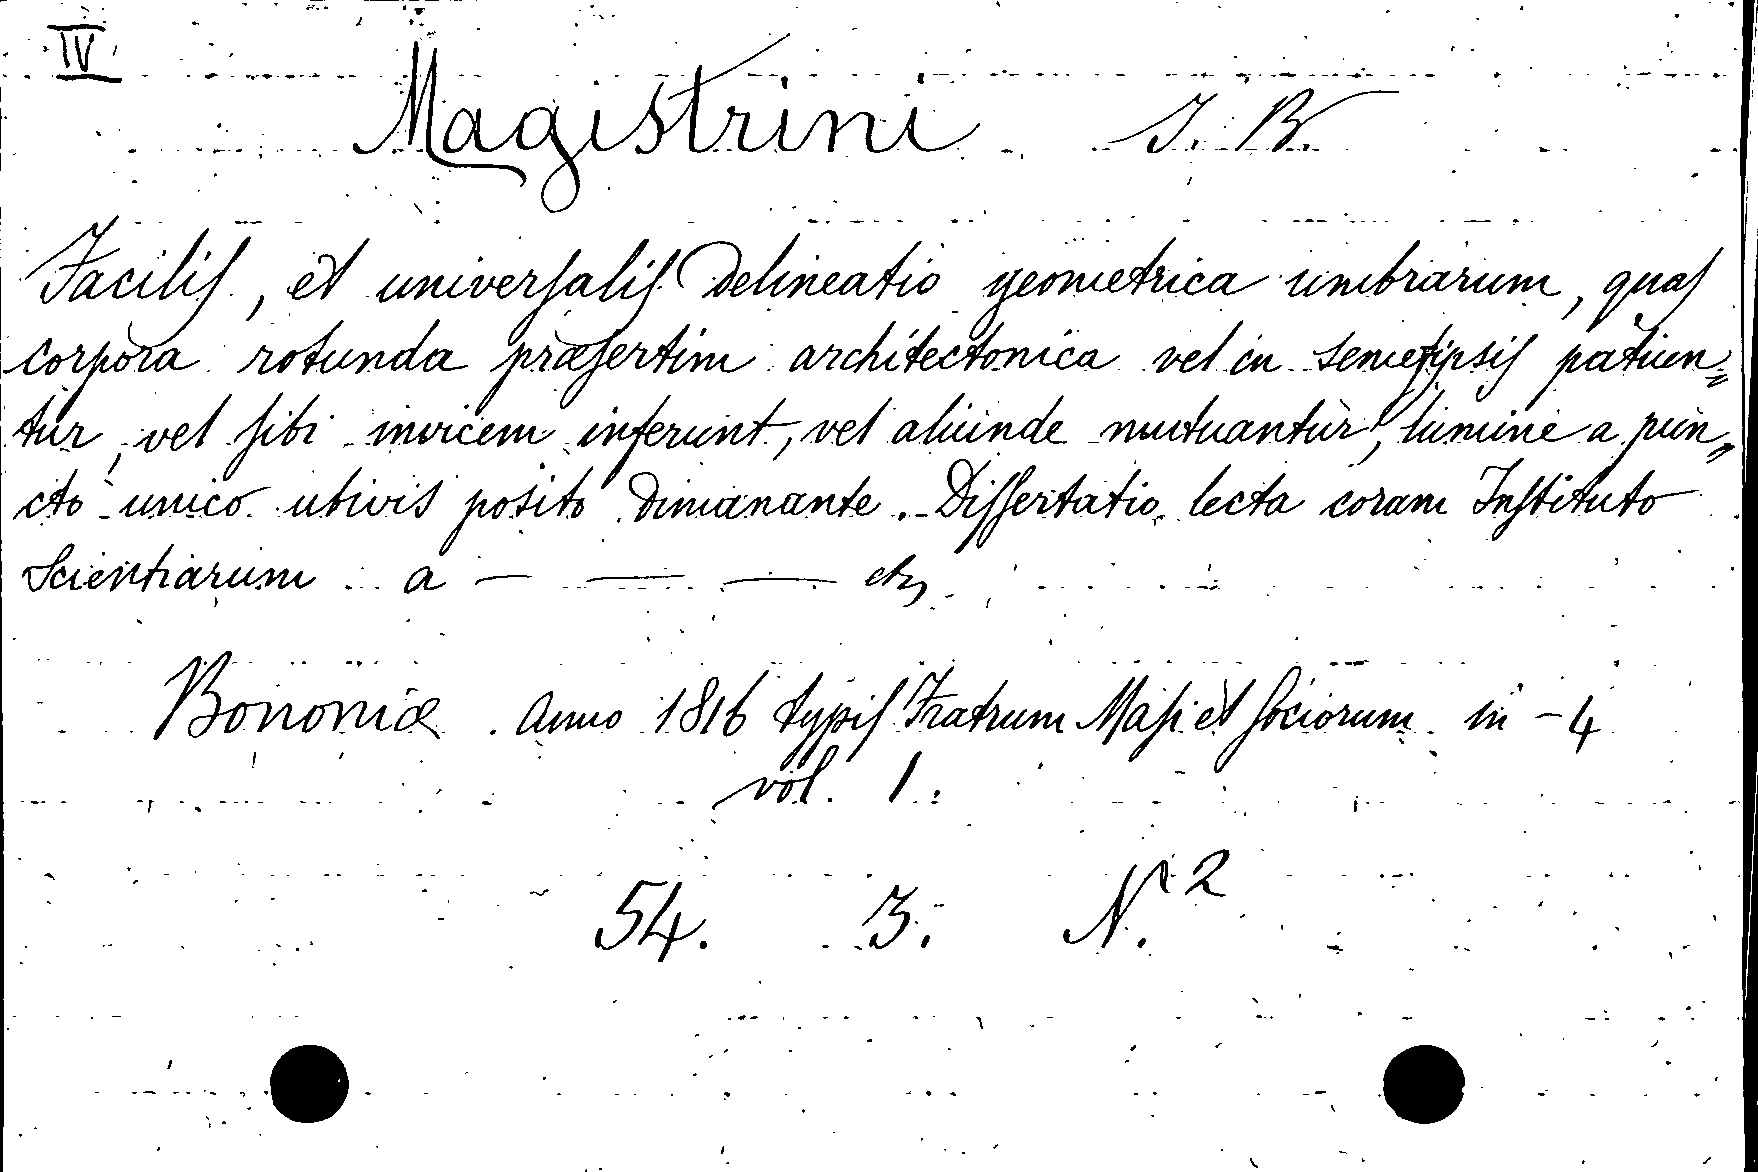 IV
Magistrini J. B.
Facilis, et universalis delineatio geometrica umbrarum, quas
corpora rotunda præsertim architectonica vel in semetipsis patiun=
tur, vel sibi invicem inferunt, vel aliunde mutuantur, lumine a pun=
cto unico ubivis posito dimanante. Dissertatio lecta coram Instituto
Scientiarum a — — — etc
Bononiæ anno 1816 typis Fratrum Masi et sociorum in-4
vol. 1.
54. 3. N. 2